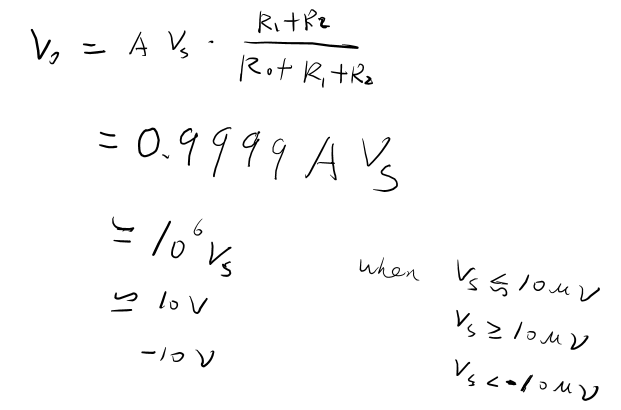 V₀ = A Vs · (R₁+R₂)/(R₀+R₁+R₂)
= 0.9999 A Vs
≃ 10⁶ Vs when Vs ≤ 10μV
≃ 10V Vs ≥ 10μV
-10V Vs < -10μV